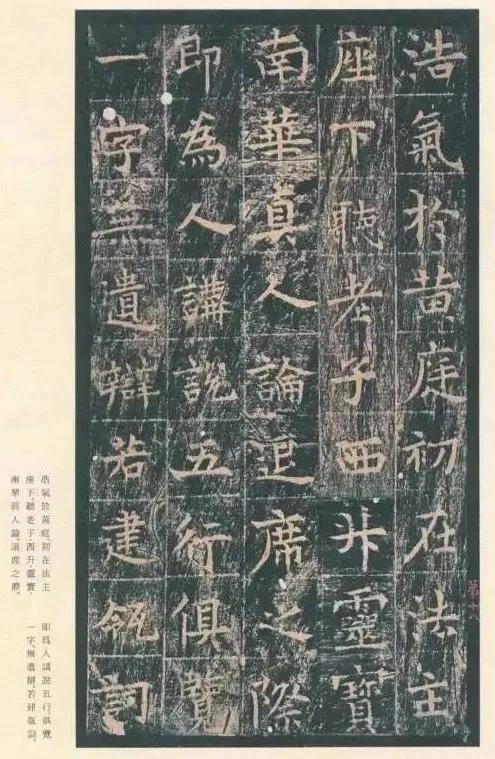 浩氣於黃庭初在法主
座下聽老子西升靈寶
南華真人論退席之際
即為人講說五行俱覽
一字無遺辯若建瓴詞
第十八
浩氣於黃庭初在法主
座下聽老子西升靈寶
南華真人論退席之際
即爲人講說五行俱覽
一字無遺辯若建瓴詞